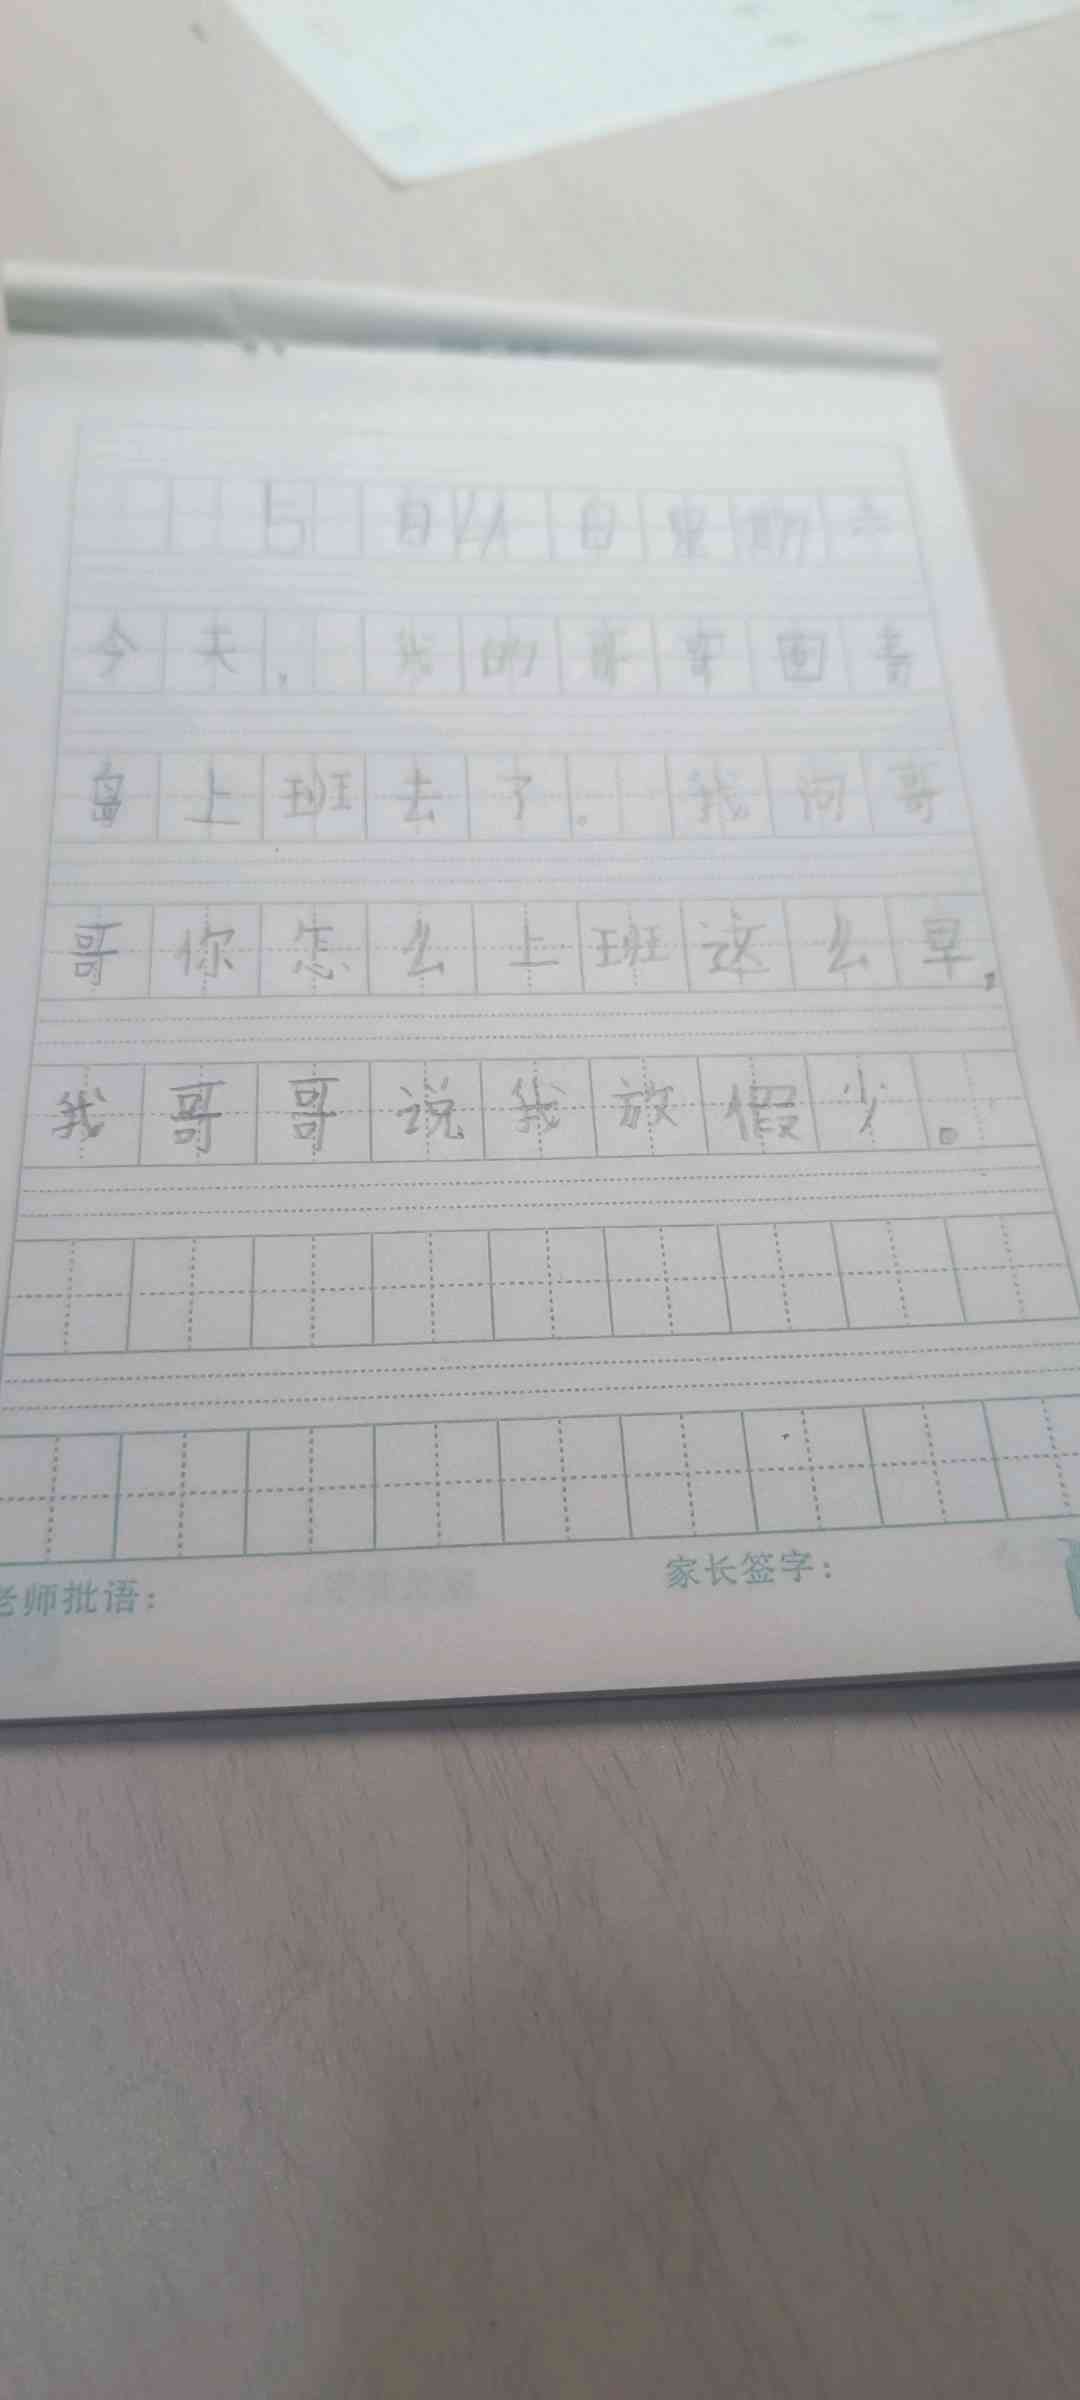 5 月 日星期六
今天，我的哥哥回青
岛上班去了。我问哥
哥你怎么上班这么早，
我哥哥说我放假少。
老师批语：
家长签字：